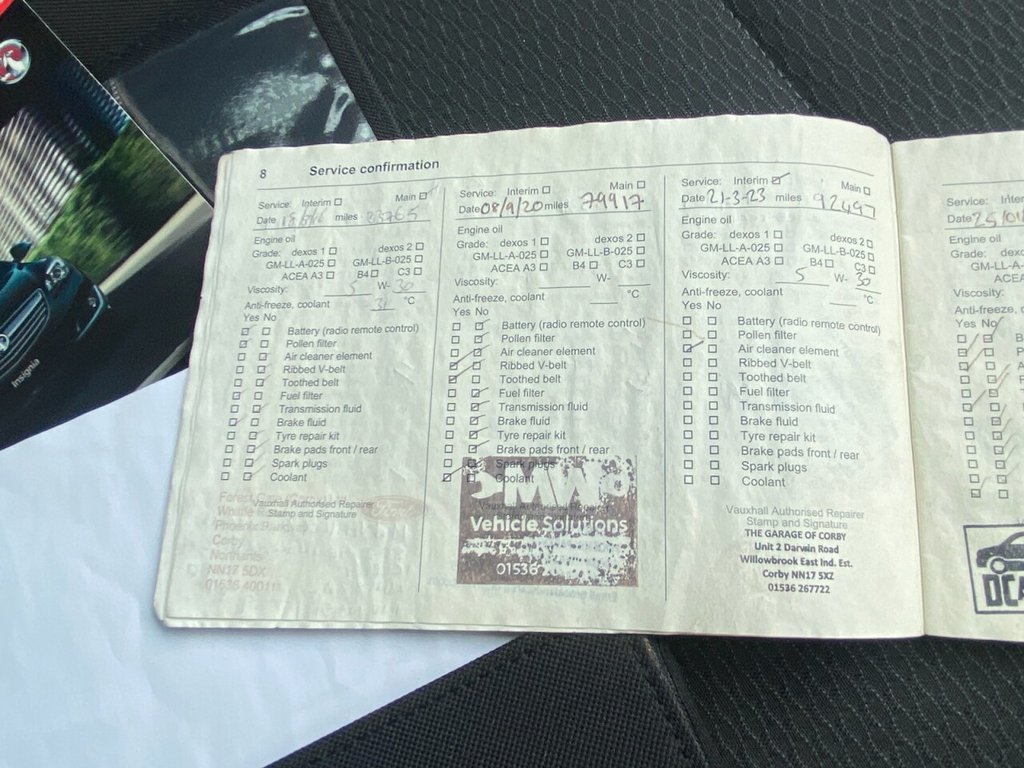 8 Service confirmation
Service: Interim Main
Date miles
Engine oil
Grade: dexos 1 dexos 2
GM-LL-A-025 GM-LL-B-025
ACEA A3 B4 C3
Viscosity: 5 W- 30
Anti-freeze, coolant 31 °C
Yes No
Battery (radio remote control)
Pollen filter
Air cleaner element
Ribbed V-belt
Toothed belt
Fuel filter
Transmission fluid
Brake fluid
Tyre repair kit
Brake pads front / rear
Spark plugs
Coolant
Vauxhall Authorised Repairer
Stamp and Signature
Phoenix
Corby
Northants
NN17 5DX
Service: Interim Main
Date 08/9/20 miles 79917
Engine oil
Grade: dexos 1 dexos 2
GM-LL-A-025 GM-LL-B-025
ACEA A3 B4 C3
Viscosity: W-
Anti-freeze, coolant °C
Yes No
Battery (radio remote control)
Pollen filter
Air cleaner element
Ribbed V-belt
Toothed belt
Fuel filter
Transmission fluid
Brake fluid
Tyre repair kit
Brake pads front / rear
Spark plugs
Coolant
DMW
Vauxhall Authorised Repairer
Vehicle Solutions
01536
Service: Interim Main
Date 21-3-23 miles 92497
Engine oil
Grade: dexos 1 dexos 2
GM-LL-A-025 GM-LL-B-025
ACEA A3 B4 C3
Viscosity: 5 W- 30
Anti-freeze, coolant °C
Yes No
Battery (radio remote control)
Pollen filter
Air cleaner element
Ribbed V-belt
Toothed belt
Fuel filter
Transmission fluid
Brake fluid
Tyre repair kit
Brake pads front / rear
Spark plugs
Coolant
Vauxhall Authorised Repairer
Stamp and Signature
THE GARAGE OF CORBY
Unit 2 Darwin Road
Willowbrook East Ind. Est.
Corby NN17 5XZ
01536 267722
Service: Inter
Date 25/01
Engine oil
Grade: dexo
GM-LL-A-
ACEA
Viscosity:
Anti-freeze, c
Yes No
DCA
Insignia